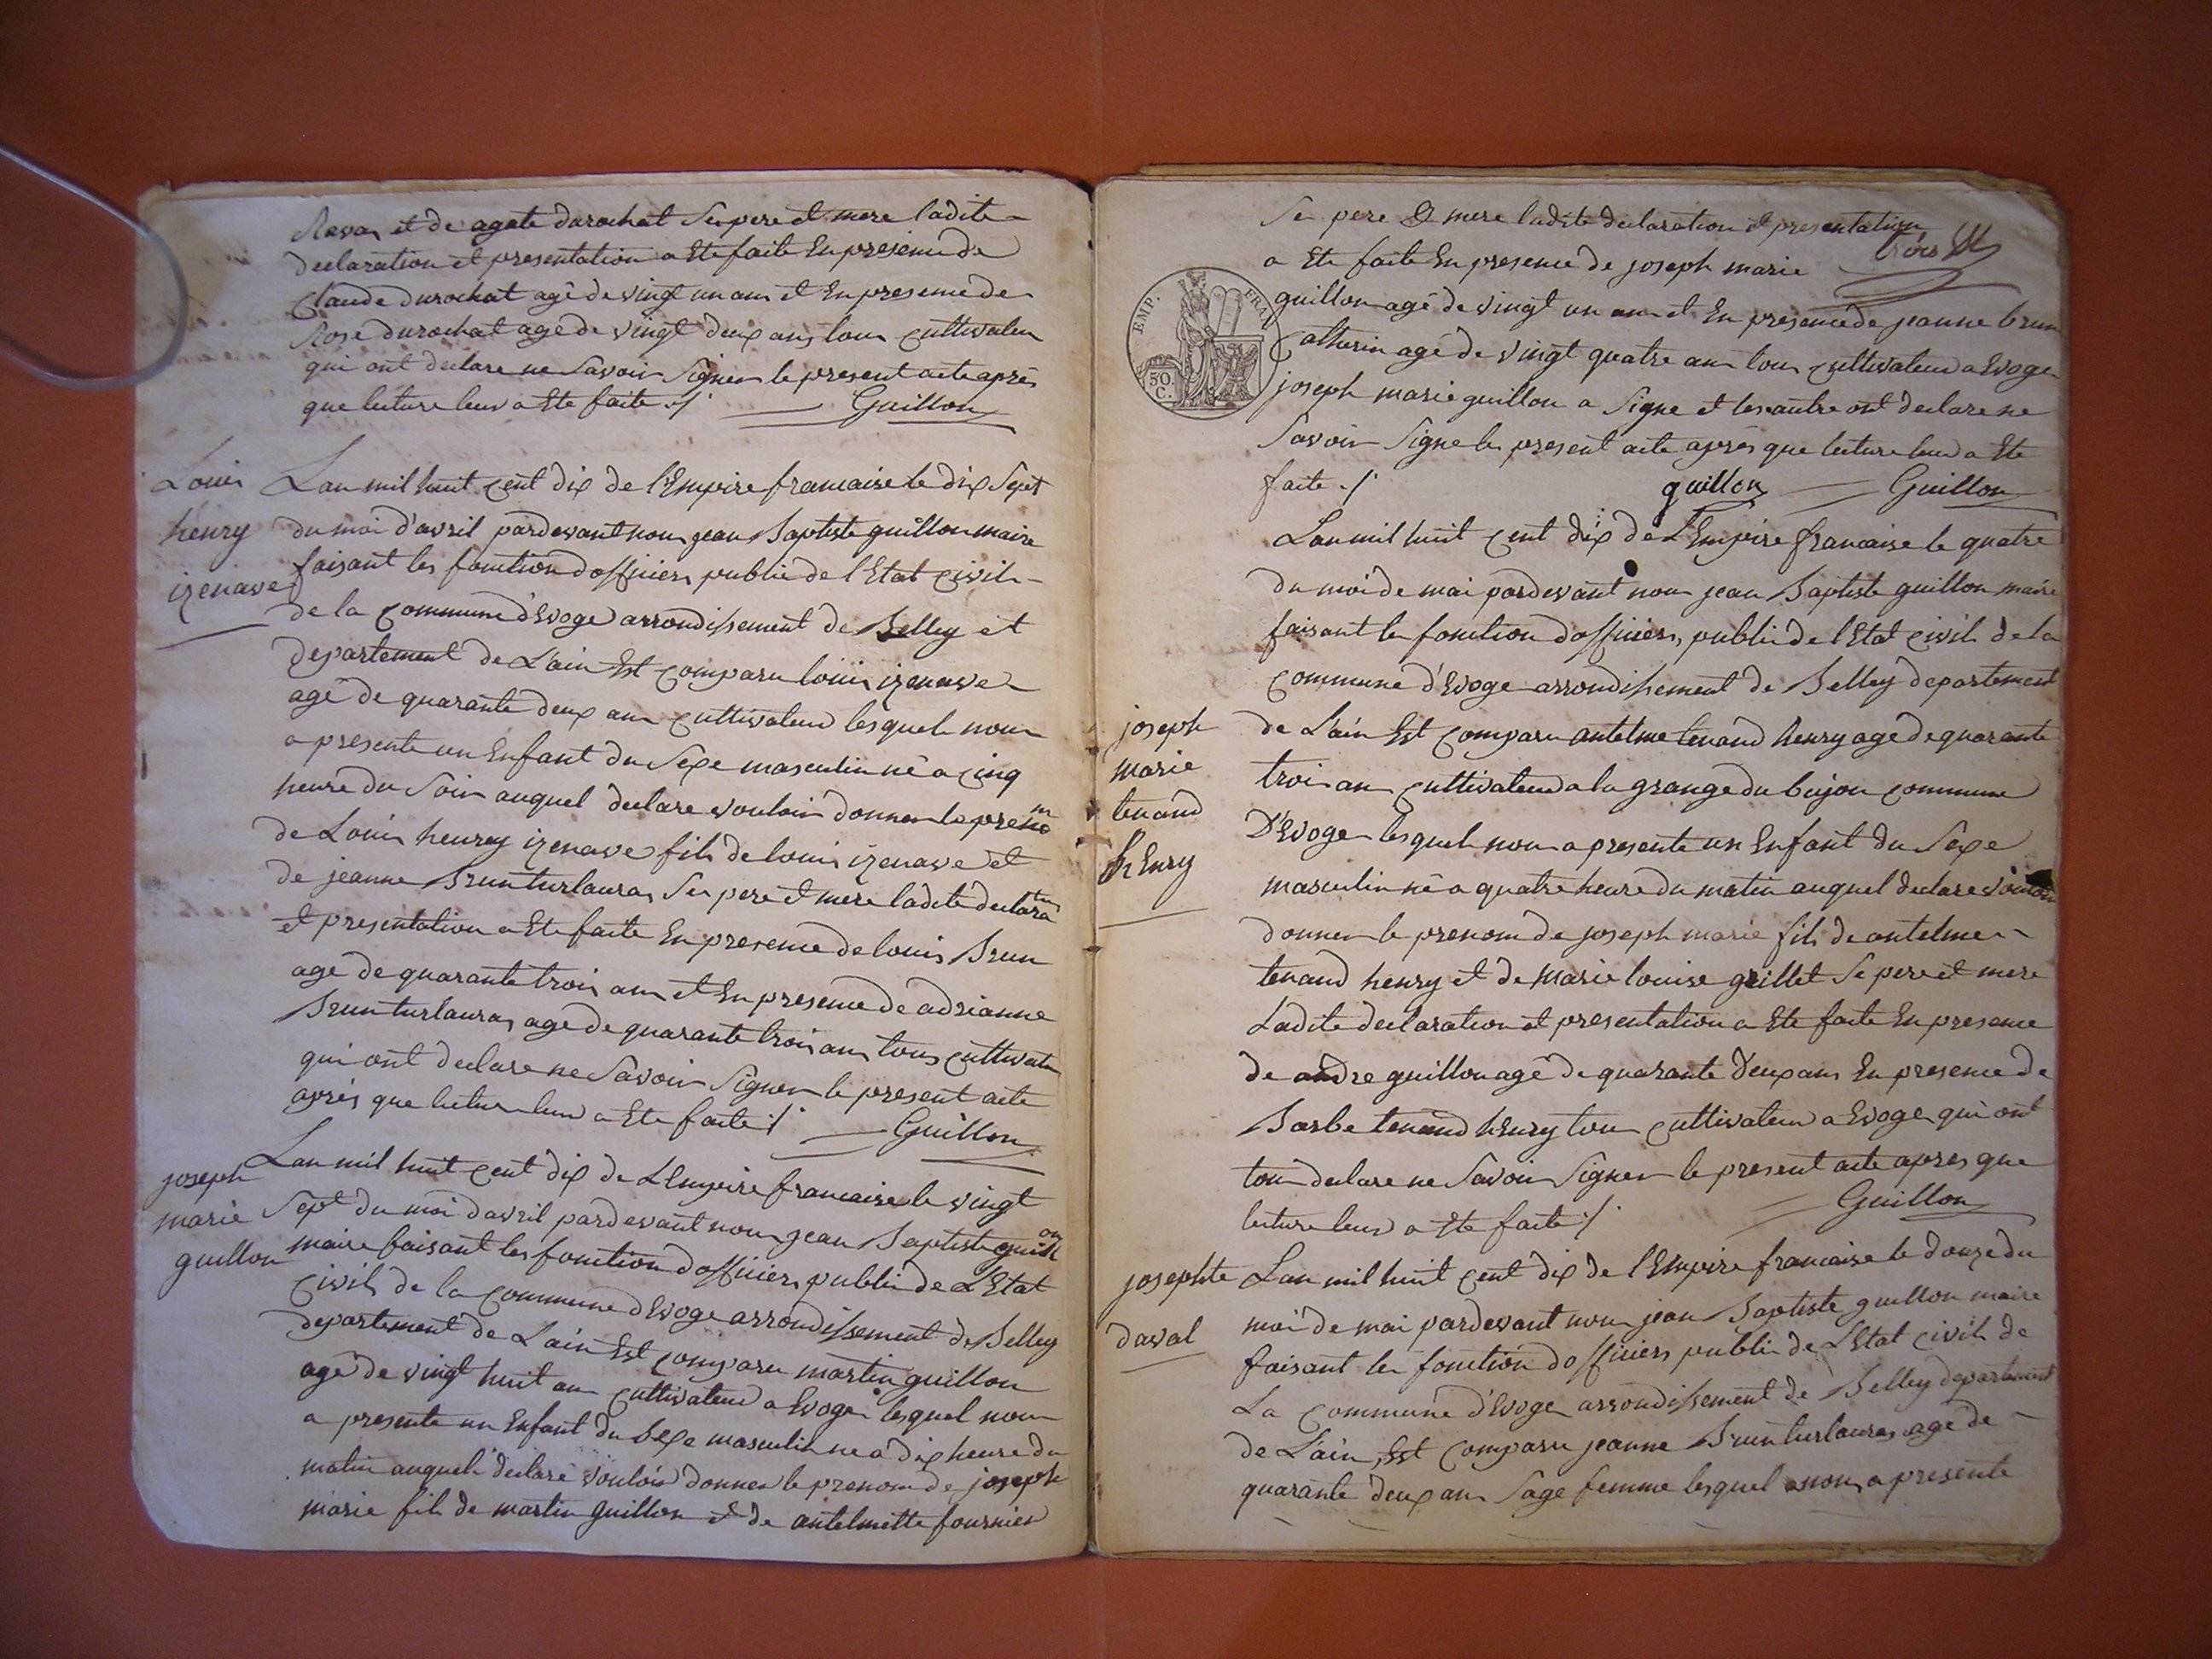 Ravas et de agate durochat Se pere et mere ladite
declaration et presentation a Ete faite En presence de
Claude durochat agé de vingt un ans et En presence de
Rose durochat agé de vingt deux ans tous cultivateu
qui ont declare ne Savoir Signer le present acte après
que lecture leur a Ete faite ./. Guillon
Louis
henry
izenave
Lan mil huit cent dix de l'Empire francaise le dix Sept
du moi d'avril pardevant nous jean Baptiste guillon maire
faisant les fonction dofficiers public de l'Etat Civil
de la Commune d'Evoge arrondissement de Belley et
departement de L'ain Est comparu louis izenave
agé de quarante deux ans cultivateur lesquels nous
a presente un Enfant du Sexe masculin né a cinq
heure du Soir auquel declare vouloir donner le prenom
de Louis henrey izenave fils de louis izenave et
de jeanne Brunturlauras Se pere et mere ladite declara on
et presentation a Ete faite En presence de louis Brun
agé de quarante trois ans et En presence de adrianne
Brunturlauras agé de quarante trois ans tous cultivate
qui ont declare ne Savoir Signer le present acte
après que lecture leur a Ete faite ./. Guillon
joseph
marie
guillon
Lan mil huit cent dix de L'Empire francaise le vingt
Sept du moi davril pardevant nous jean Baptiste guillon
maire faisant les fonction dofficiers public de L'Etat
Civil de la Commune d'Evoge arrondissement de Belley
departement de L'ain Est comparu martin guillon
agé de vingt huit ans cultivateur a Evoge lesquel nous
a presente un Enfant du Sexe masculin ne a dix heure du
matin auquel declare vouloir donner le prenom de joseph
marie fils de martin guillon et de antelmette fournier
Se pere & mere ladite declaration et presentation
trois
a Ete faite En presence de joseph marie
EMP. FRA
50. C.
guillon agé de vingt un ans et En presence de jeanne brun
Catherin agé de vingt quatre ans tous cultivateur a Evoge
joseph marie guillon a Signe et les autre ont declare ne
Savoir Signe le present acte après que lecture leur a Ete
faite ./. guillon Guillon
Lan mil huit cent dix de L'Empire francaise le quatre
du moi de mai pardevant nous jean Baptiste guillon maire
faisant les fonction dofficiers public de l'Etat Civil de la
Commune d'Evoge arrondissement de Belley departement
joseph
marie
tenand
hEnry
de L'ain Est comparu antelme tenand henry agé de quarante
trois ans cultivateur a la grange du bujon commune
D'Evoge lesquels nous a presente un Enfant du Sexe
masculin né a quatre heure du matin auquel declare vouloir
donner le prenom de joseph marie fils de antelme
tenand henry et de Marie louise grillet Se pere et mere
Ladite declaration et presentation a Ete faite En presence
de andre guillon agé de quarante deux ans En presence de
Barbe tenand hEnry tous cultivateur a Evoge qui ont
tous declare ne Savoir Signer le present acte apres que
lecture leur a Ete faite ./. Guillon
josephte
daval
Lan mil huit cent dix de l'Empire francaise le douze du
moi de mai pardevant nous jean Baptiste guillon maire
faisant les fonction dofficiers public de L'Etat Civil de
La Commune d'Evoge arrondissement de Belley departement
de L'ain Est comparu jeanne Brunturlauras agé de
quarante deux ans Sage femme lesquel nous a presente